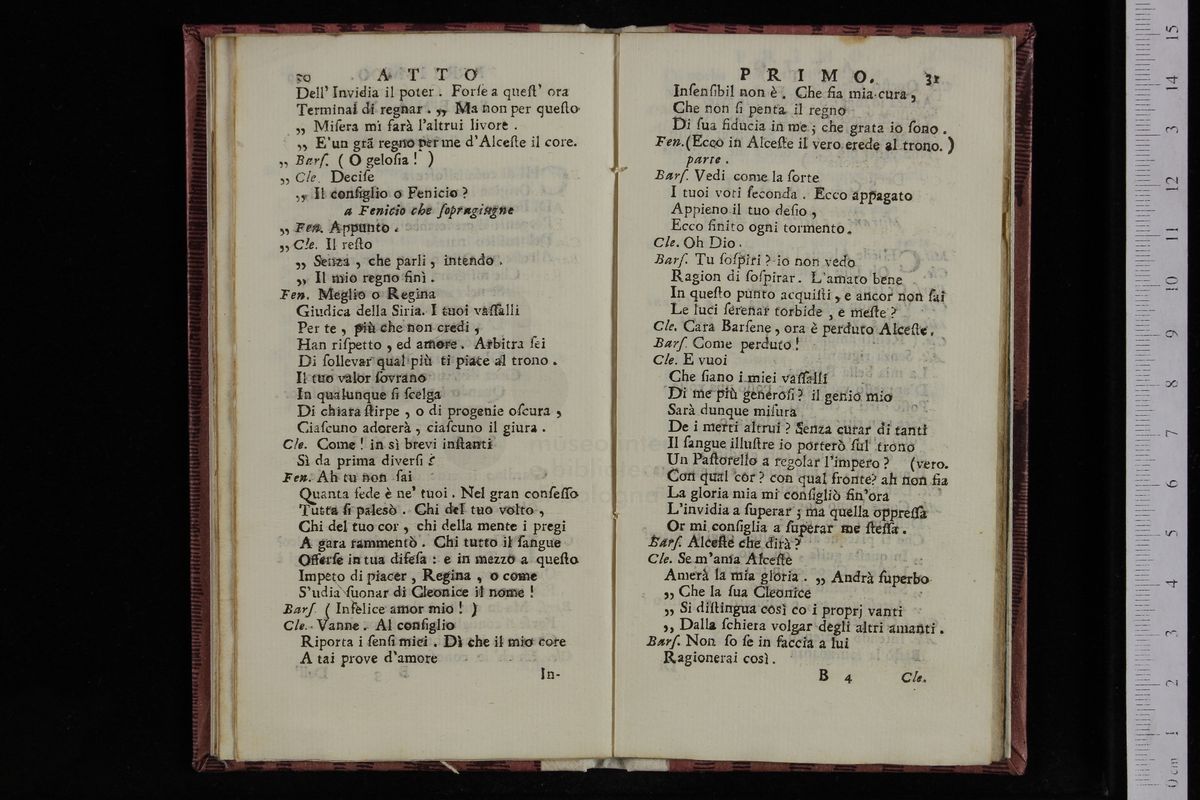 30 A T T O
Dell' Invidia il poter . Forſe a queſt' ora
Terminai di regnar . „ Ma non per queſto
„ Miſera mi farà l'altrui livore .
„ E'un grã regno per me d'Alceſte il core.
„ Barſ. ( O geloſia ! )
„ Cle. Deciſe
„ Il conſiglio o Fenicio ?
a Fenicio che ſopragiugne
„ Fen. Appunto .
„ Cle. Il reſto
„ Senza , che parli , intendo .
„ Il mio regno finì .
Fen. Meglio o Regina
Giudica della Siria. I tuoi vaſſalli
Per te , più che non credi ,
Han riſpetto , ed amore . Arbitra ſei
Di ſollevar qual più ti piace al trono .
Il tuo valor ſovrano
In qualunque ſi ſcelga
Di chiara ſtirpe , o di progenie oſcura ,
Ciaſcuno adorerà , ciaſcuno il giura .
Cle. Come ! in sì brevi inſtanti
Sì da prima diverſi ?
Fen. Ah tu non ſai
Quanta fede è ne' tuoi . Nel gran conſeſſo
Tutta ſi palesò . Chi del tuo volto ,
Chi del tuo cor , chi della mente i pregi
A gara rammentò . Chi tutto il ſangue
Offerſe in tua difeſa : e in mezzo a queſto
Impeto di piacer , Regina , o come
S'udia ſuonar di Cleonice il nome !
Barſ. ( Infelice amor mio ! )
Cle. Vanne . Al conſiglio
Riporta i ſenſi miei . Dì che il mio core
A tai prove d'amore
In-
P R I M O. 31
Inſenſibil non è . Che fia mia cura ,
Che non ſi penta il regno
Di ſua fiducia in me ; che grata io ſono .
Fen.(Ecco in Alceſte il vero erede al trono. )
parte .
Barſ. Vedi come la ſorte
I tuoi voti ſeconda . Ecco appagato
Appieno il tuo deſio ,
Ecco finito ogni tormento.
Cle. Oh Dio .
Barſ. Tu ſoſpiri ? io non vedo
Ragion di ſoſpirar. L'amato bene
In queſto punto acquiſti , e ancor non ſai
Le luci ſerenar torbide , e meſte ?
Cle. Cara Barſene , ora è perduto Alceſte.
Barſ. Come perduto !
Cle. E vuoi
Che ſiano i miei vaſſalli
Di me più generoſi ? il genio mio
Sarà dunque miſura
De i merti altrui ? Senza curar di tanti
Il ſangue illuſtre io porterò ſul trono
Un Paſtorello a regolar l'impero ? (vero.
Con qual cor ? con qual fronte? ah non fia
La gloria mia mi conſigliò fin'ora
L'invidia a ſuperar ; ma quella oppreſſa
Or mi conſiglia a ſuperar me ſteſſa .
Barſ. Alceſte che dirà ?
Cle. Se m'ama Alceſte
Amerà la mia gloria . „ Andrà ſuperbo
„ Che la ſua Cleonice
„ Si diſtingua così co i proprj vanti
„ Dalla ſchiera volgar degli altri amanti .
Barſ. Non ſo ſe in faccia a lui
Ragionerai così .
B 4 Cle.